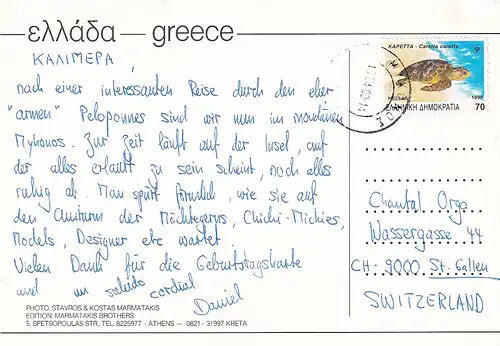 ελλάδα — greece
ΚΑΛΙΜΕΡΑ,
nach einer interessanten Reise durch den eher
"armen" Peloponnes sind wir nun im mondänen
Mykonos. Zur Zeit läuft auf der Insel, auf
der alles erlaubt zu sein scheint, noch alles
ruhig ab. Man spürt förmlich, wie sie auf
den Ansturm der Möchtegerns, Chichi-Mickies,
Models, Designer etc wartet
Vielen Dank für die Geburtstagskarte
und un saludo cordial
Daniel
PHOTO: STAVROS & KOSTAS MARMATAKIS
EDITION: MARMATAKIS BROTHERS
5, SPETSOPOULAS STR, TEL. 8225977 - ATHENS — 0821 - 31997 KRETA
ΚΑΡΕΤΤΑ - Caretta caretta
HELLAS 1990
ΕΛΛΗΝΙΚΗ ΔΗΜΟΚΡΑΤΙΑ 70
Chantal Orga
Wassergasse 44
CH-9000 St. Gallen
SWITZERLAND